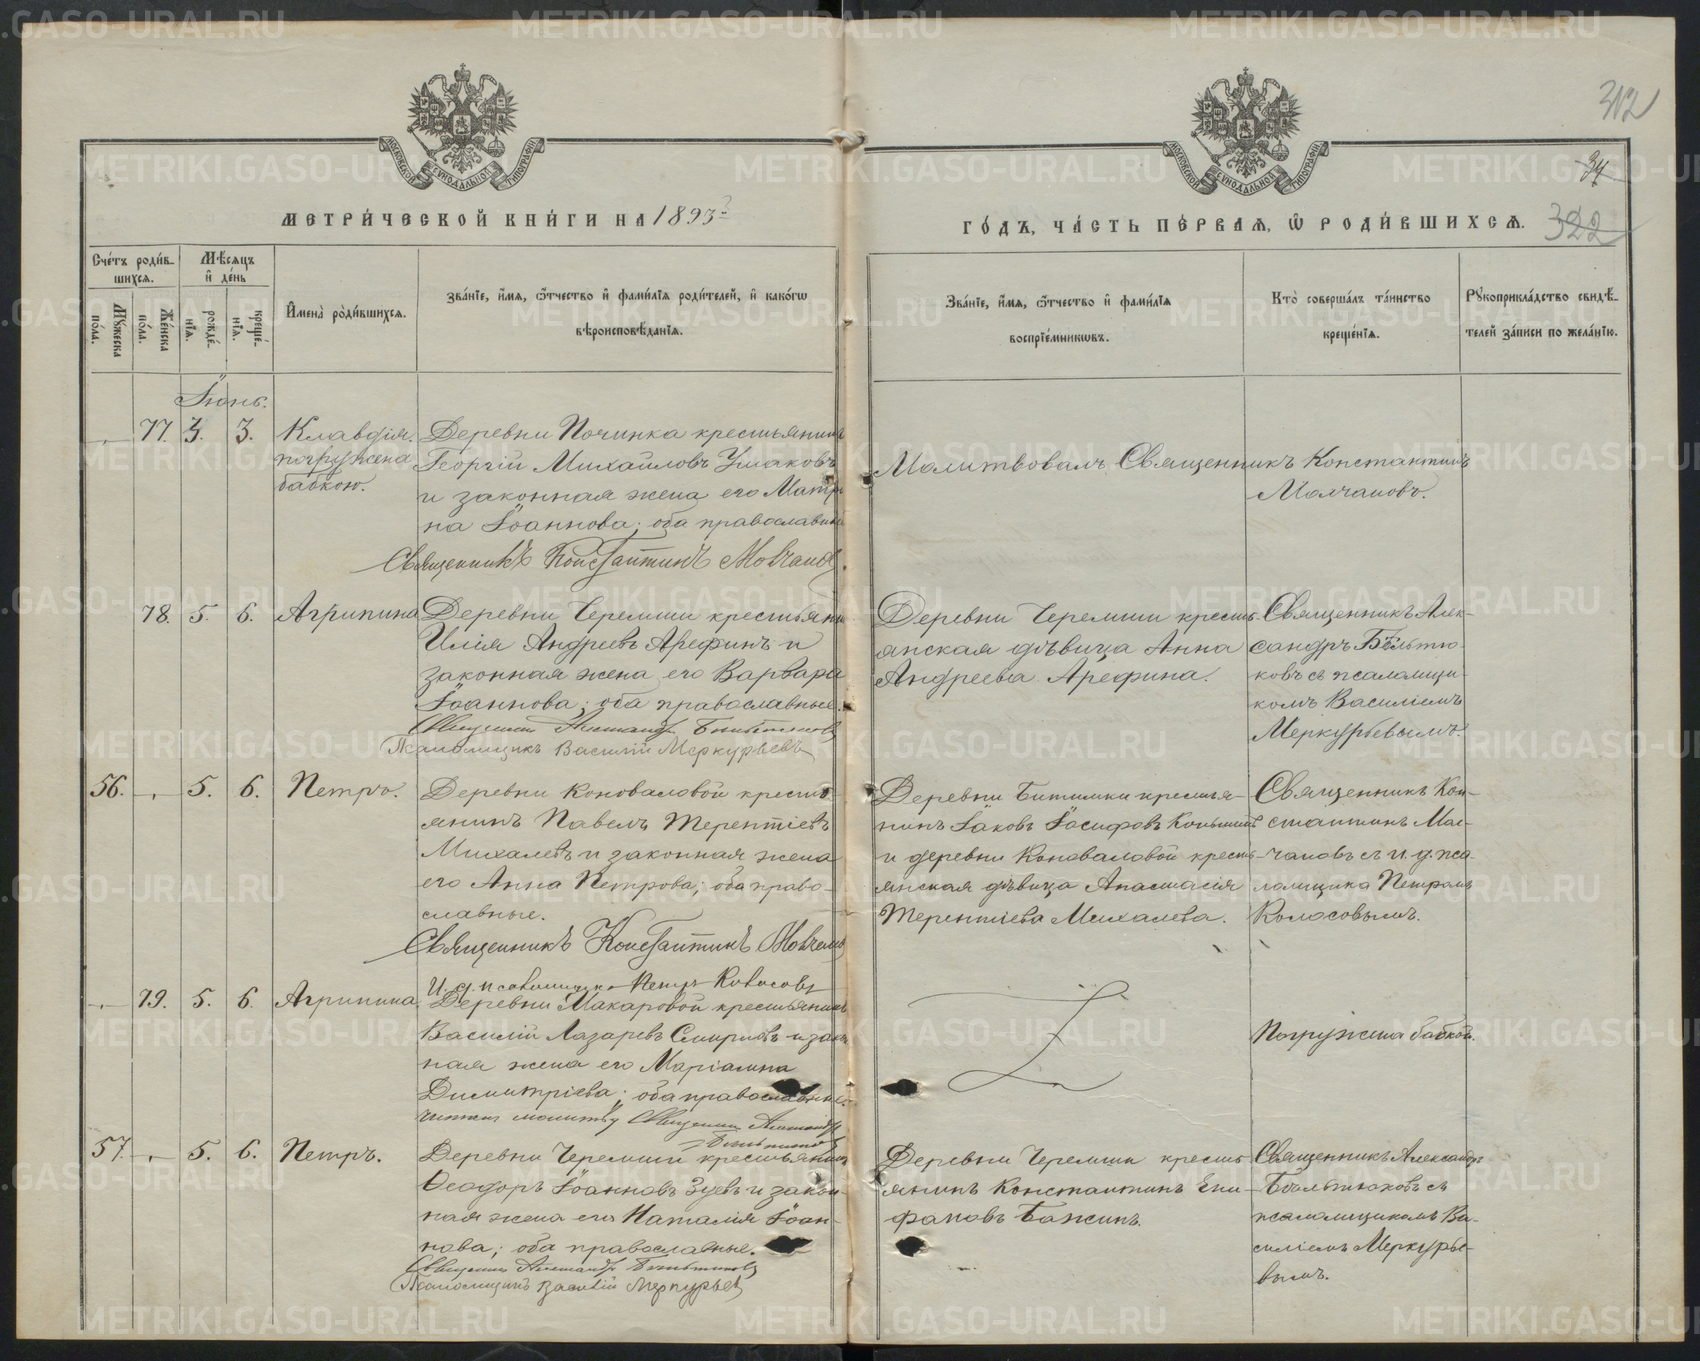 312
34
322
МЕТРИ́ЧЕСКОЙ КНИ́ГИ НА 1893
ГО́ДЪ, ЧА́СТЬ ПЕ́РВАЯ, Ѡ РОДИ́ВШИХСѦ.
Сче́тъ роди́в-
шихсѧ.
Мѣ́сѧцъ
и де́нь
Мꙋ́жеска
по́ла.
Же́нска
по́ла.
рожде́-
нїѧ.
креще́-
нїѧ.
И҆мена̀ роди́вшихсѧ.
Зва́нїе, и҆́мѧ, ѻ҆́тчество и҆ фами́лїѧ роди́телей, и҆ како́гѡ
вѣроисповѣ́данїѧ.
Зва́нїе, и҆́мѧ, ѻ҆́тчество и҆ фами́лїѧ
воспрїе́мникѡвъ.
Кто̀ соверша́лъ та́инство
креще́нїѧ.
Рꙋкоприкла́дство свидѣ́-
телей за́писи по жела́нїю.
Іюнь.
77. 3. 3. Клавдія.
погружена
бабкою.
Деревни Починка крестьянинъ
Георгій Михайловъ Ушаковъ
и законная жена его Матро
на Іоаннова; оба православные
Священникъ Константинъ Молчановъ.
Молитвовалъ Священникъ Константинъ
Молчановъ.
78. 5. 6. Агрипина
Деревни Черемши крестьянинъ
Илія Андреевъ Арефинъ и
законная жена его Варвара
Іоаннова; оба православные.
Священникъ Александръ Бѣльтюковъ
Псаломщикъ Василій Меркурьевъ
Деревни Черемши кресть-
янская дѣвица Анна
Андреева Арефина.
Священникъ Алек-
сандръ Бѣльтю-
ковъ съ псаломщи-
комъ Василіемъ
Меркурьевымъ.
56. 5. 6. Петръ.
Деревни Коноваловой кресть-
янинъ Павелъ Терентіевъ
Михалевъ и законная жена
его Анна Петрова; оба право-
славные.
Священникъ Константинъ Молчановъ
И. д. псаломщика Петръ Колосовъ
Деревни Битимки крестья-
нинъ Іаковъ Іосифовъ
и деревни Коноваловой кресть-
янская дѣвица Анастасія
Терентіева Михалева.
Священникъ Кон-
стантинъ Мол-
чановъ съ и. д. пса-
ломщика Петромъ
Колосовымъ.
79. 5. 6. Агрипина
Деревни Макаровой крестьянинъ
Василій Лазаревъ Смирновъ и закон
ная жена его Маріамна
Димитріева; оба православные
читалъ молитву Священникъ Александръ
Бѣльтюковъ
Погружена бабкой.
57. 5. 6. Петръ.
Деревни Черемши крестьянинъ
Ѳеодоръ Іоанновъ Зуевъ и закон-
ная жена его Наталія Іоан-
нова; оба православные.
Священникъ Александръ Бѣльтюковъ
Псаломщикъ Василій Меркурьевъ
Деревни Черемши кресть
янинъ Константинъ Епи
фановъ Бажинъ.
Священникъ Александръ
Бѣльтюковъ съ
псаломщикомъ Ва-
силіемъ Меркурье-
вымъ.
METRIKI.GASO-URAL.RU